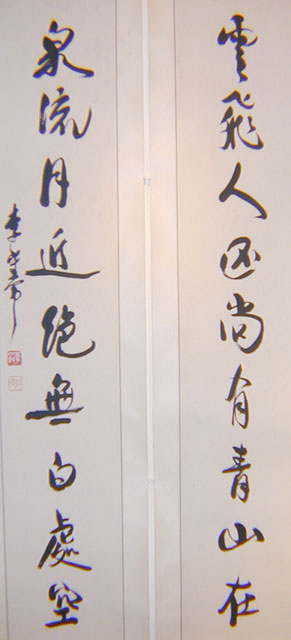 雲飛人尚有青山在
泉流月近絕無白處空
李